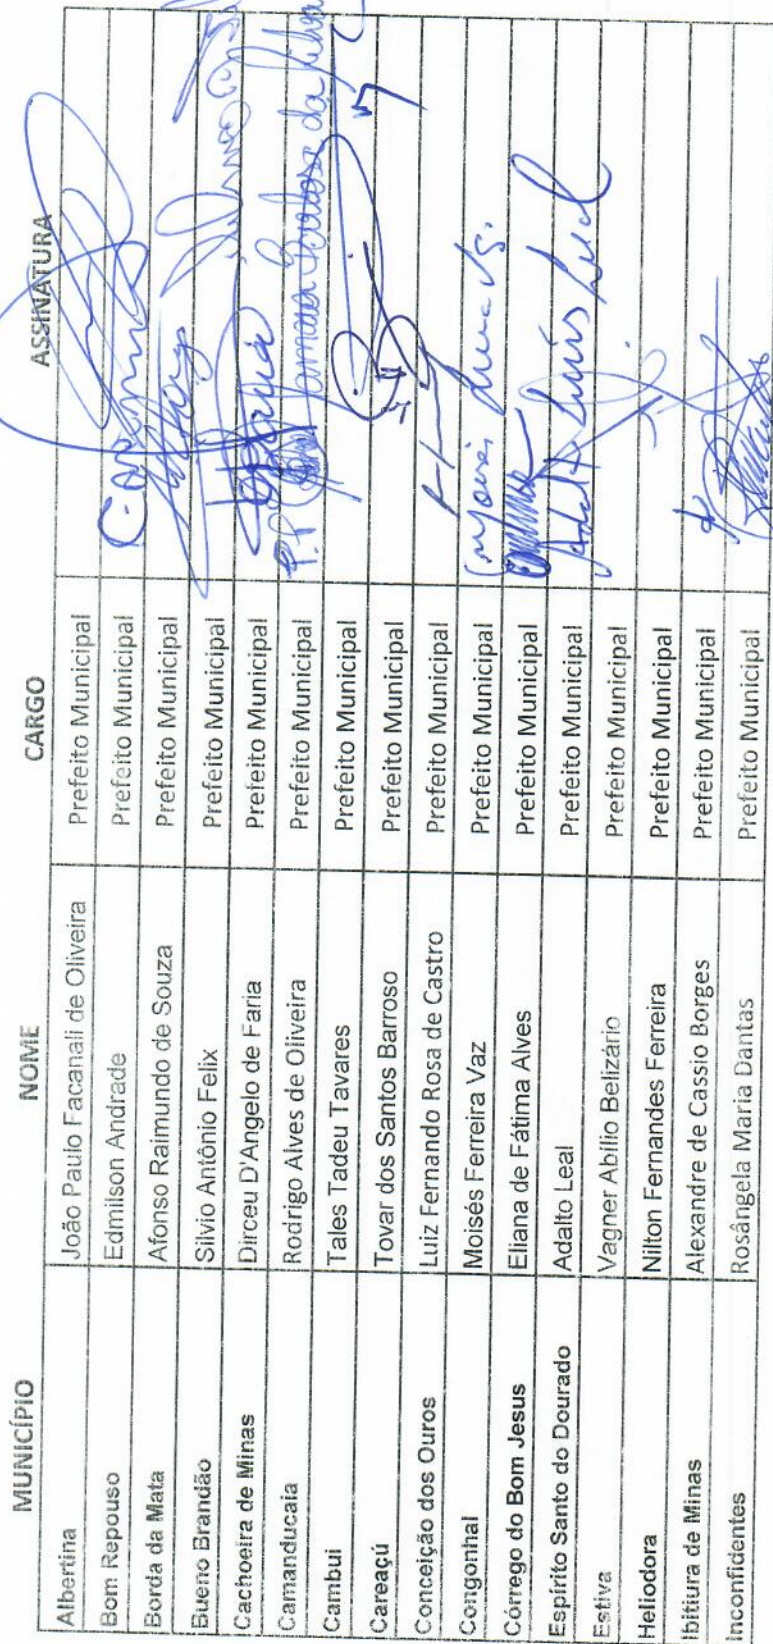 MUNICÍPIO NOME CARGO ASSINATURA
Albertina João Paulo Facanali de Oliveira Prefeito Municipal
Bom Repouso Edmilson Andrade Prefeito Municipal
Borda da Mata Afonso Raimundo de Souza Prefeito Municipal
Bueno Brandão Silvio Antônio Felix Prefeito Municipal
Cachoeira de Minas Dirceu D'Angelo de Faria Prefeito Municipal
Camanducaia Rodrigo Alves de Oliveira Prefeito Municipal P.P
Cambui Tales Tadeu Tavares Prefeito Municipal
Careaçú Tovar dos Santos Barroso Prefeito Municipal
Conceição dos Ouros Luiz Fernando Rosa de Castro Prefeito Municipal
Congonhal Moisés Ferreira Vaz Prefeito Municipal
Córrego do Bom Jesus Eliana de Fátima Alves Prefeito Municipal
Espírito Santo do Dourado Adalto Leal Prefeito Municipal Adalto Luís Leal
Estiva Vagner Abílio Belizário Prefeito Municipal
Heliodora Nilton Fernandes Ferreira Prefeito Municipal
Ibitiura de Minas Alexandre de Cassio Borges Prefeito Municipal
Inconfidentes Rosângela Maria Dantas Prefeito Municipal